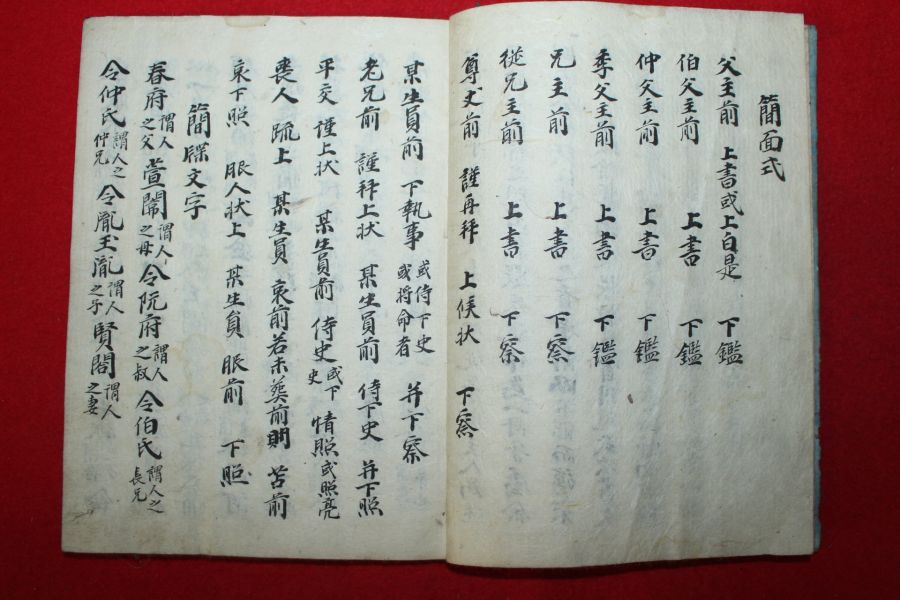 簡面式
父主前 上書或上白是 下鑑
伯父主前 上書 下鑑
仲父主前 上書 下鑑
季父主前 上書 下鑑
兄主前 上書 下察
從兄主前 上書 下察
尊丈前 謹再拜 上候狀 下察
某生員前 下執事 或侍下史 或將命者 并下察
老兄前 謹拜上狀 某生員前 侍下史 并下照
平交 謹上狀 某生員前 侍史 或下史 情照或照亮
喪人 疏上 某生員 哀前若未葬前則 苫前
哀下照 服人狀上 某生員 服前 下照
簡牒文字
春府 謂人之父 萱闈 謂人之母 令阮府 謂人之叔 令伯氏 謂人之長兄
令仲氏 謂人之仲兄 令胤玉胤 謂人之子 賢閤 謂人之妻